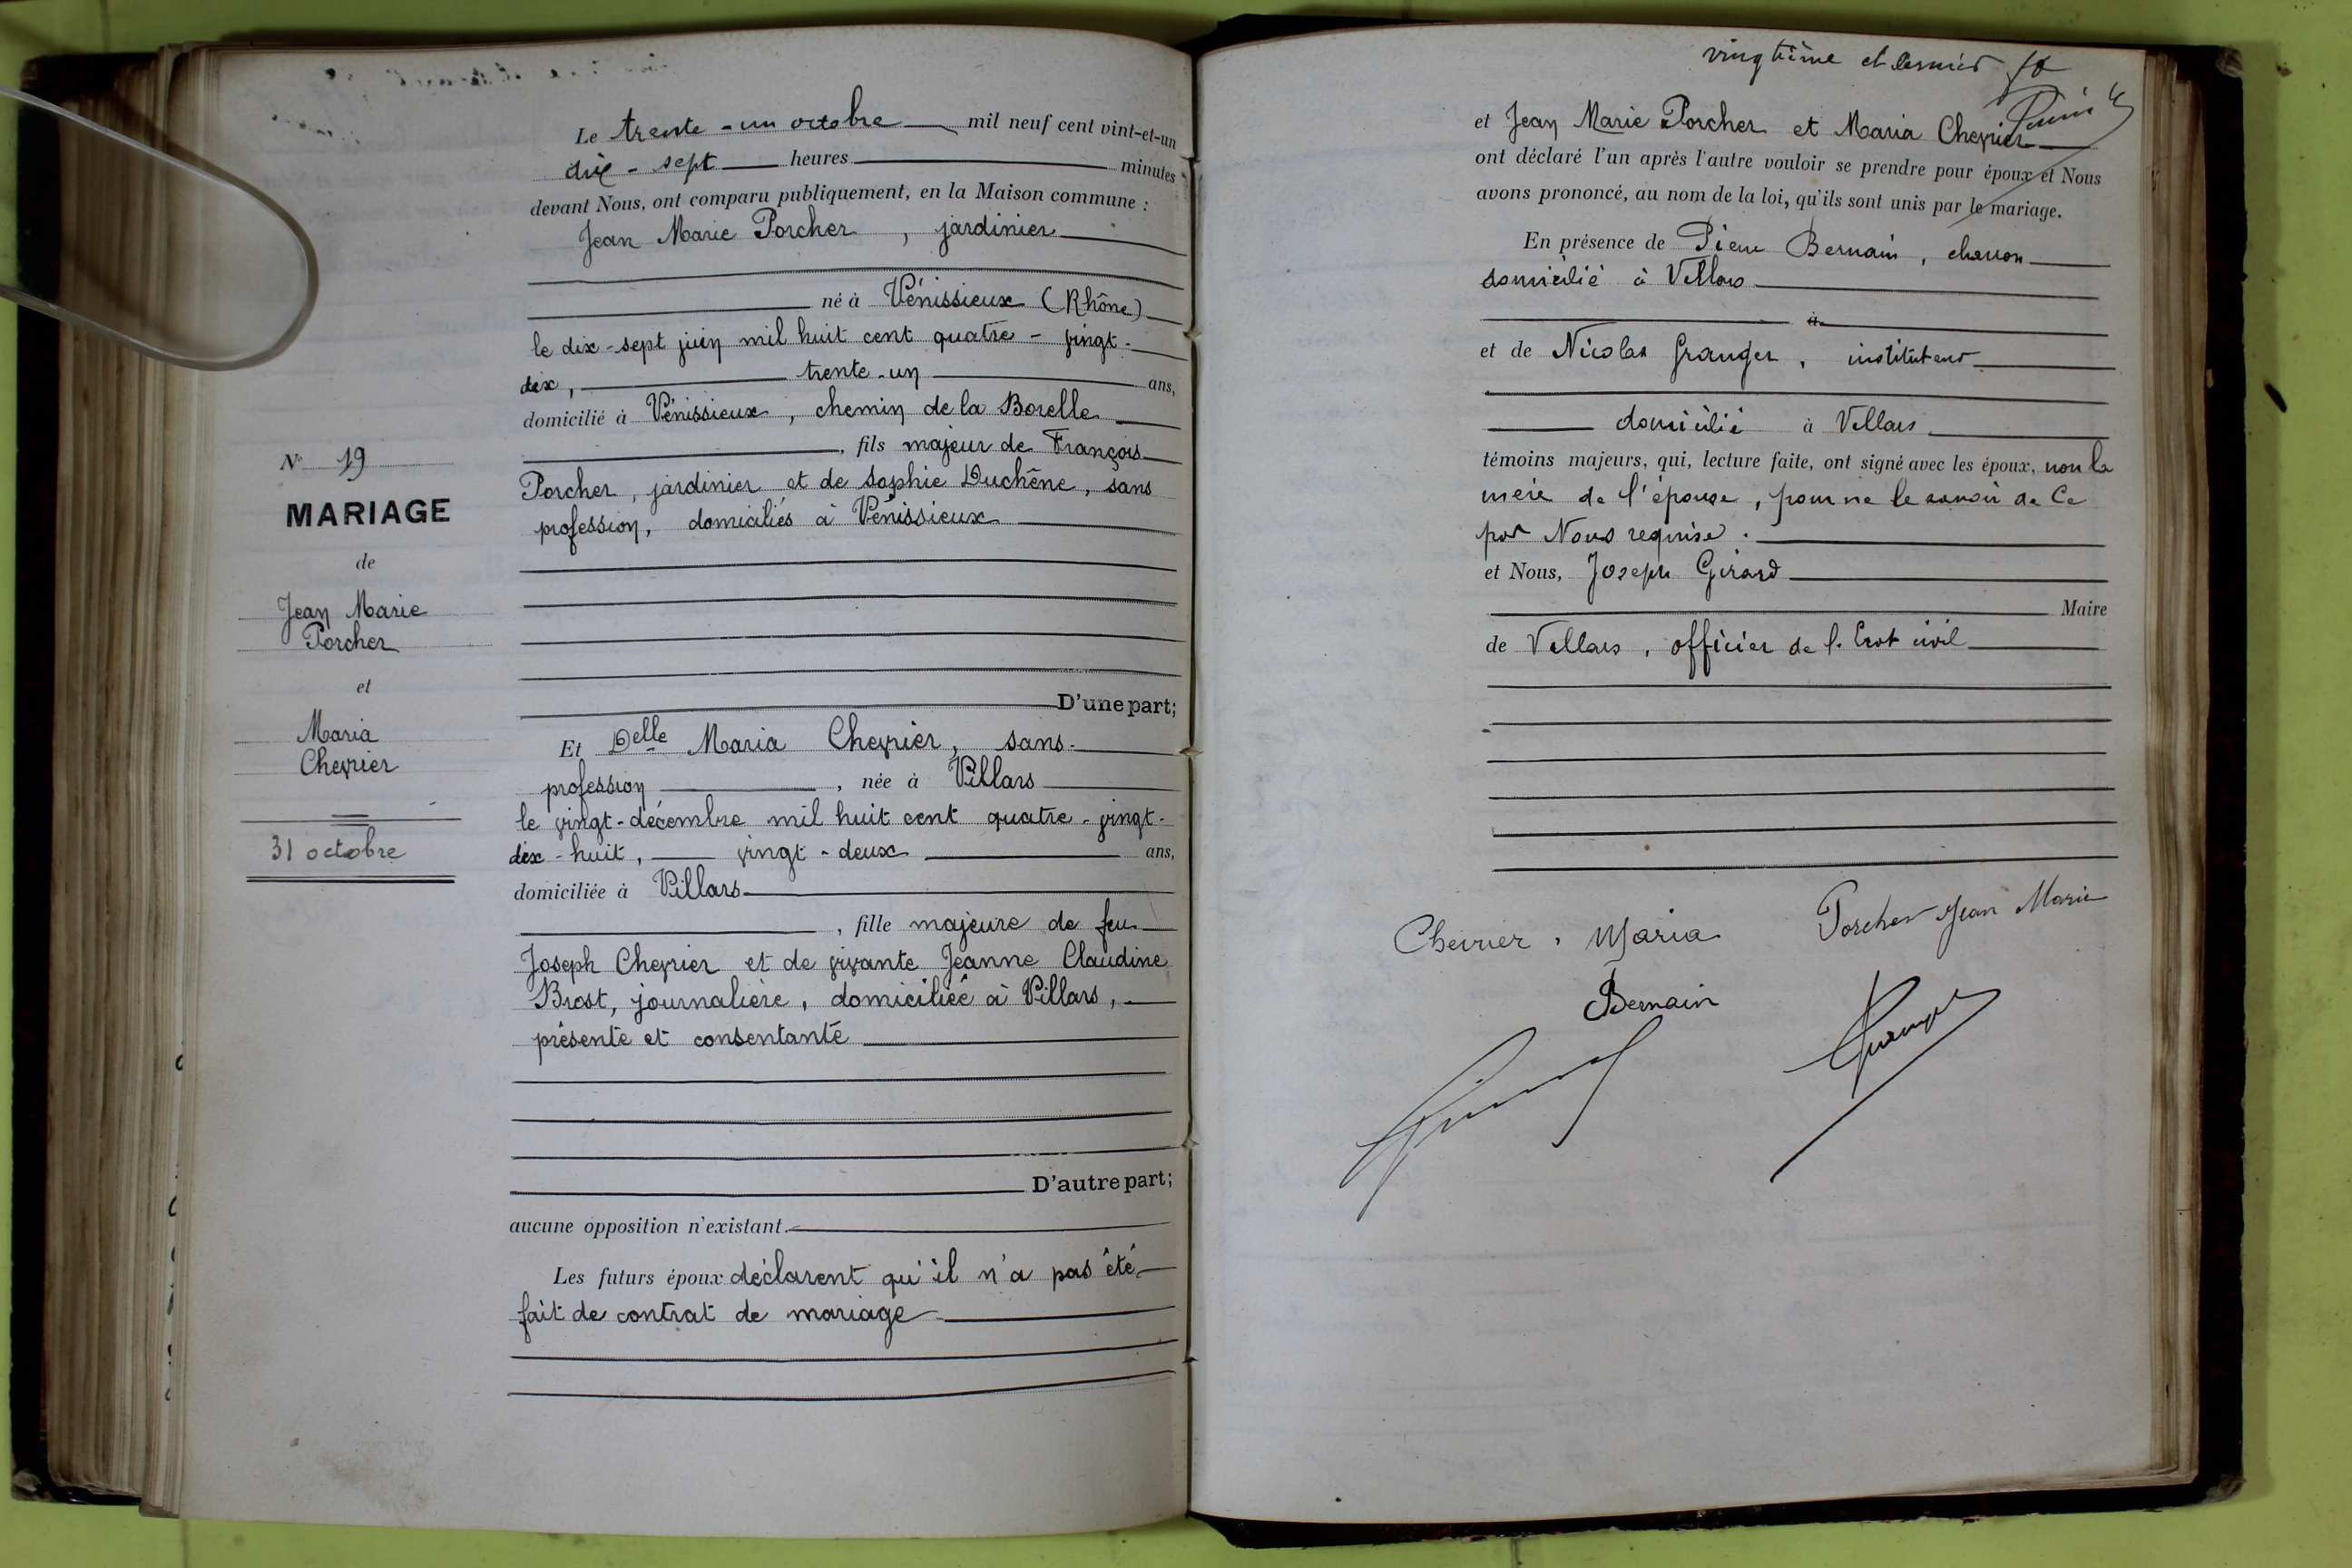 N° 19
MARIAGE
de
Jean Marie
Porcher
et
Maria
Chevrier
31 octobre
Le trente-un octobre mil neuf cent vint-et-un
dix-sept heures minutes
devant Nous, ont comparu publiquement, en la Maison commune :
Jean Marie Porcher, jardinier
né à Vénissieux (Rhône)
le dix-sept juin mil huit cent quatre-vingt-
dix, trente-un ans,
domicilié à Vénissieux, chemin de la Borelle
, fils majeur de François
Porcher, jardinier et de Sophie Duchêne, sans
profession, domiciliés à Vénissieux
D'une part;
Et Delle Maria Chevrier, sans
profession, née à Villars
le vingt-décembre mil huit cent quatre-vingt-
dix-huit, vingt-deux ans,
domiciliée à Villars
, fille majeure de feu
Joseph Chevrier et de vivante Jeanne Claudine
Brost, journalière, domiciliée à Villars,
présente et consentante
D'autre part;
aucune opposition n'existant.
Les futurs époux déclarent qu'il n'a pas été
fait de contrat de mariage
vingtième et dernier
et Jean Marie Porcher et Maria Chevrier
ont déclaré l'un après l'autre vouloir se prendre pour époux et Nous
avons prononcé, au nom de la loi, qu'ils sont unis par le mariage.
En présence de Pierre Bernain, charron
domicilié à Villars
à
et de Nicolas Granger, instituteur
domicilié à Villars
témoins majeurs, qui, lecture faite, ont signé avec les époux, non la
mère de l'épouse, pour ne le savoir de ce
par Nous requise.
et Nous, Joseph Girard
Maire
de Villars, officier de l'Etat civil
Chevrier, Maria Porcher Jean Marie
Bernain